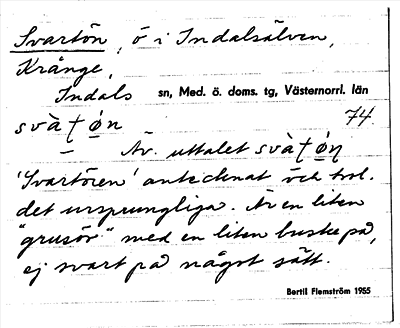 Svartön, ö i Indalsälven,
Krånge,
Indals sn, Med. ö. doms. tg, Västernorrl. län
svàʈǿn 74
Äv. uttalet svàʈǿn̥
'Svartören' antecknat och trol.
det ursprungliga. Är en liten
"grusör" med en liten buske på,
ej svart på något sätt.
Bertil Flemström 1955